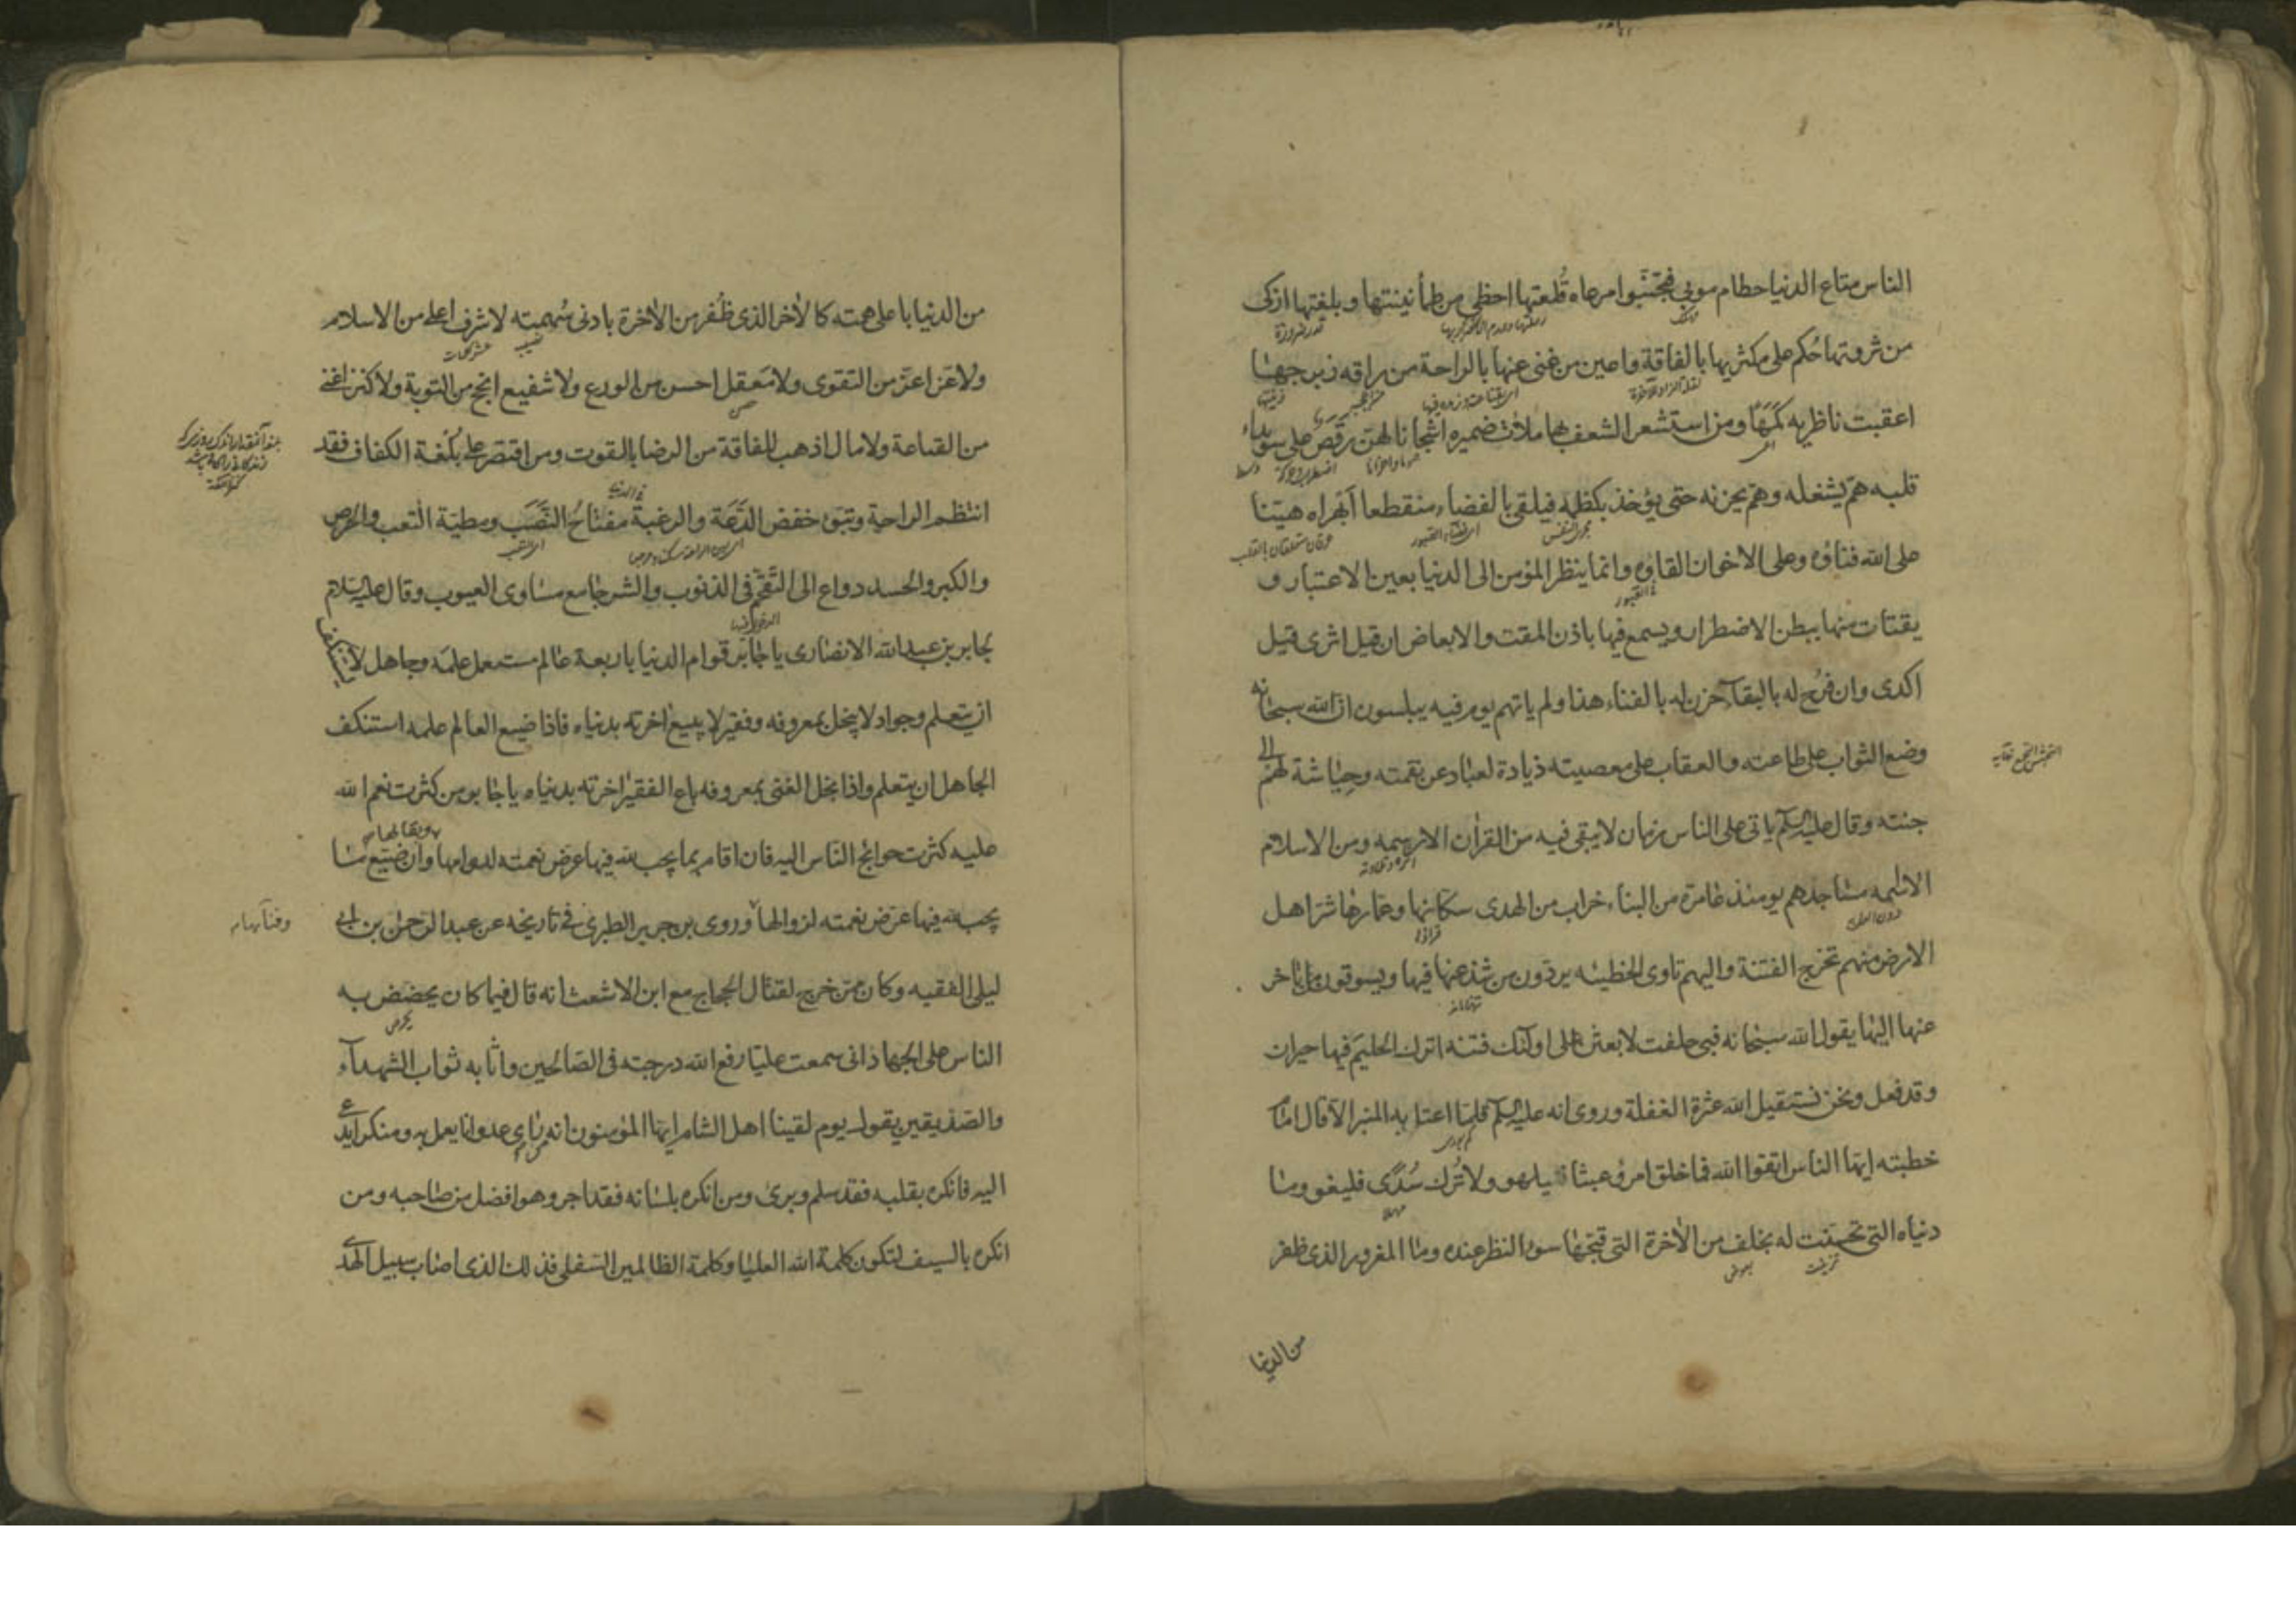 الناس متاع الدنيا حطام موبئ فتجنبوا مرعاه قلعتها احظى من طمأنينتها وبلغتها ازكى
من ثروتها حكم على مكثريها بالفاقة واعين من غنى عنها بالراحة من راقه زبرجها
اعقبت ناظريه كمها ومن استشعر الشعف بها ملات ضميره اشجانا لهن رقص على سويداء
قلبه هم يشغله وهم يحزنه حتى يؤخذ بكظمه فيلقى بالفضاء منقطعا ابهراه هينا
على الله فناؤه وعلى الاخوان القاؤه وانما ينظر المؤمن الى الدنيا بعين الاعتبار و
يقتات منها ببطن الاضطرار ويسمع فيها باذن المقت والابعاض ان قيل اثرى قيل
اكدى وان فرح له بالبقآء حزن له بالفناء هذا ولم ياتهم يوم فيه يبلسون ان الله سبحانه
وضع الثواب على طاعته والعقاب على معصيته ذيادة لعباده عن نقمته وحياشة لهم الى
جنته وقال عليه السلم ياتى على الناس زمان لا يبقى فيه من القرآن الا رسمه ومن الاسلام
الا اسمه مساجدهم يومئذ عامرة من البناء خراب من الهدى سكانها وعمارها شر اهل
الارض منهم تخرج الفتنة واليهم تاوى الخطيئه يردون من شذ عنها فيها ويسوقون من تاخر
عنها اليها يقول الله سبحانه فبى حلفت لابعثن على اولئك فتنه اترك الحليم فيها حيران
وقد فعل ونحن نستقيل الله عثرة الغفلة وروى انه عليه السلم قلما اعتدل به المنبر الا قال امام
خطبته ايها الناس اتقوا الله فما خلق امرؤ عبثا فيلهو ولا ترك سدى فليغو وما
دنياه التى تحسنت له بخلف من الآخرة التى قبحها سوء النظر عنده وما المغرور الذى ظفر
من الدنيا
من الدنيا باعلى همته كالآخر الذى ظفر من الآخرة بادنى سهمته لا شرف اعلى من الاسلام
ولا عز اعز من التقوى ولا معقل احسن من الورع ولا شفيع انجح من التوبة ولا كنز اغنى
من القناعة ولا مال اذهب للفاقة من الرضا بالقوت ومن اقتصر على بلغة الكفاف فقد
انتظم الراحة وتبوء خفض الدعة والرغبة مفتاح النصب ومطية التعب والحرص
والكبر والحسد دواع الى التقحم فى الذنوب والشر جامع مساوى العيوب وقال عليه السلام
لجابر بن عبد الله الانصارى يا جابر قوام الدنيا باربعة عالم مستعمل علمه وجاهل لا يستنكف
ان يتعلم وجواد لا يبخل بمعروفه وفقير لا يبيع اخرته بدنياه فاذا ضيع العالم علمه استنكف
الجاهل ان يتعلم واذا بخل الغنى بمعروفه باع الفقير اخرته بدنياه يا جابر من كثرت نعم الله
عليه كثرت حوائج الناس اليه فان اقام بما يجب لله فيها عرض نعمته لدوامها وان ضيع ما
يجب لله فيها عرض نعمته لزوالها وروى بن جرير الطبرى فى تاريخه عن عبد الرحمن بن ابى
ليلى الفقيه وكان ممن خرج لقتال الحجاج مع ابن الاشعث انه قال فيما كان يحضض به
الناس على الجهاد انى سمعت عليا رفع الله درجته فى الصالحين واثابه ثواب الشهدآء
والصديقين يقول يوم لقينا اهل الشام ايها المؤمنون انه من راى عدوانا يعمل به ومنكرا يدعى
اليه فانكره بقلبه فقد سلم وبرئ ومن انكره بلسانه فقد اجر وهو افضل من صاحبه ومن
انكره بالسيف لتكون كلمة الله العليا وكلمة الظالمين السفلى فذلك الذى اصاب سبيل الهدى